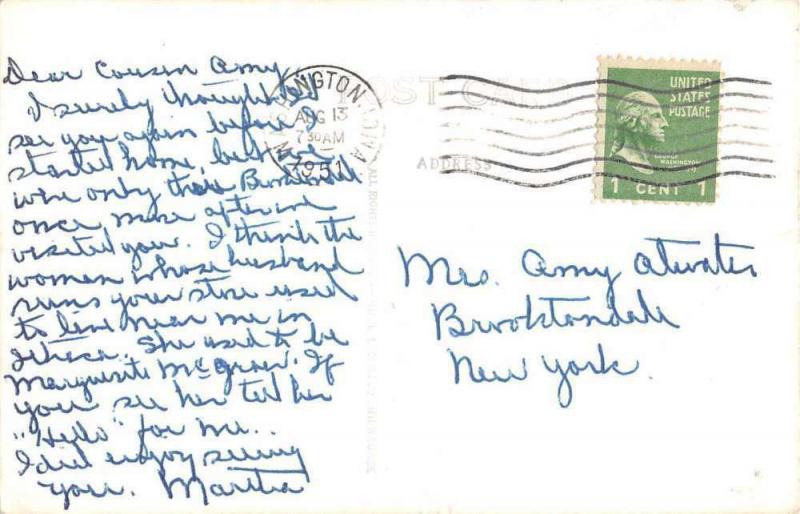 Dear Cousin Amy,
I surely thought I'd
see you again before I
started home, but we
were only thru Brooktondale
once more after we
visited you. I think the
woman whose husband
runs your store used
to live near me in
Ithaca. She used to be
Marguerite McGraw. If
you see her tell her
"Hello" for me.
I did enjoy seeing
you. Martha
WASHINGTON, IOWA
AUG 13
7 30 AM
1951
POST CARD
ADDRESS
UNITED
STATES
POSTAGE
GEORGE
WASHINGTON
1 CENT 1
Mrs. Amy Atwater
Brooktondale
New York.